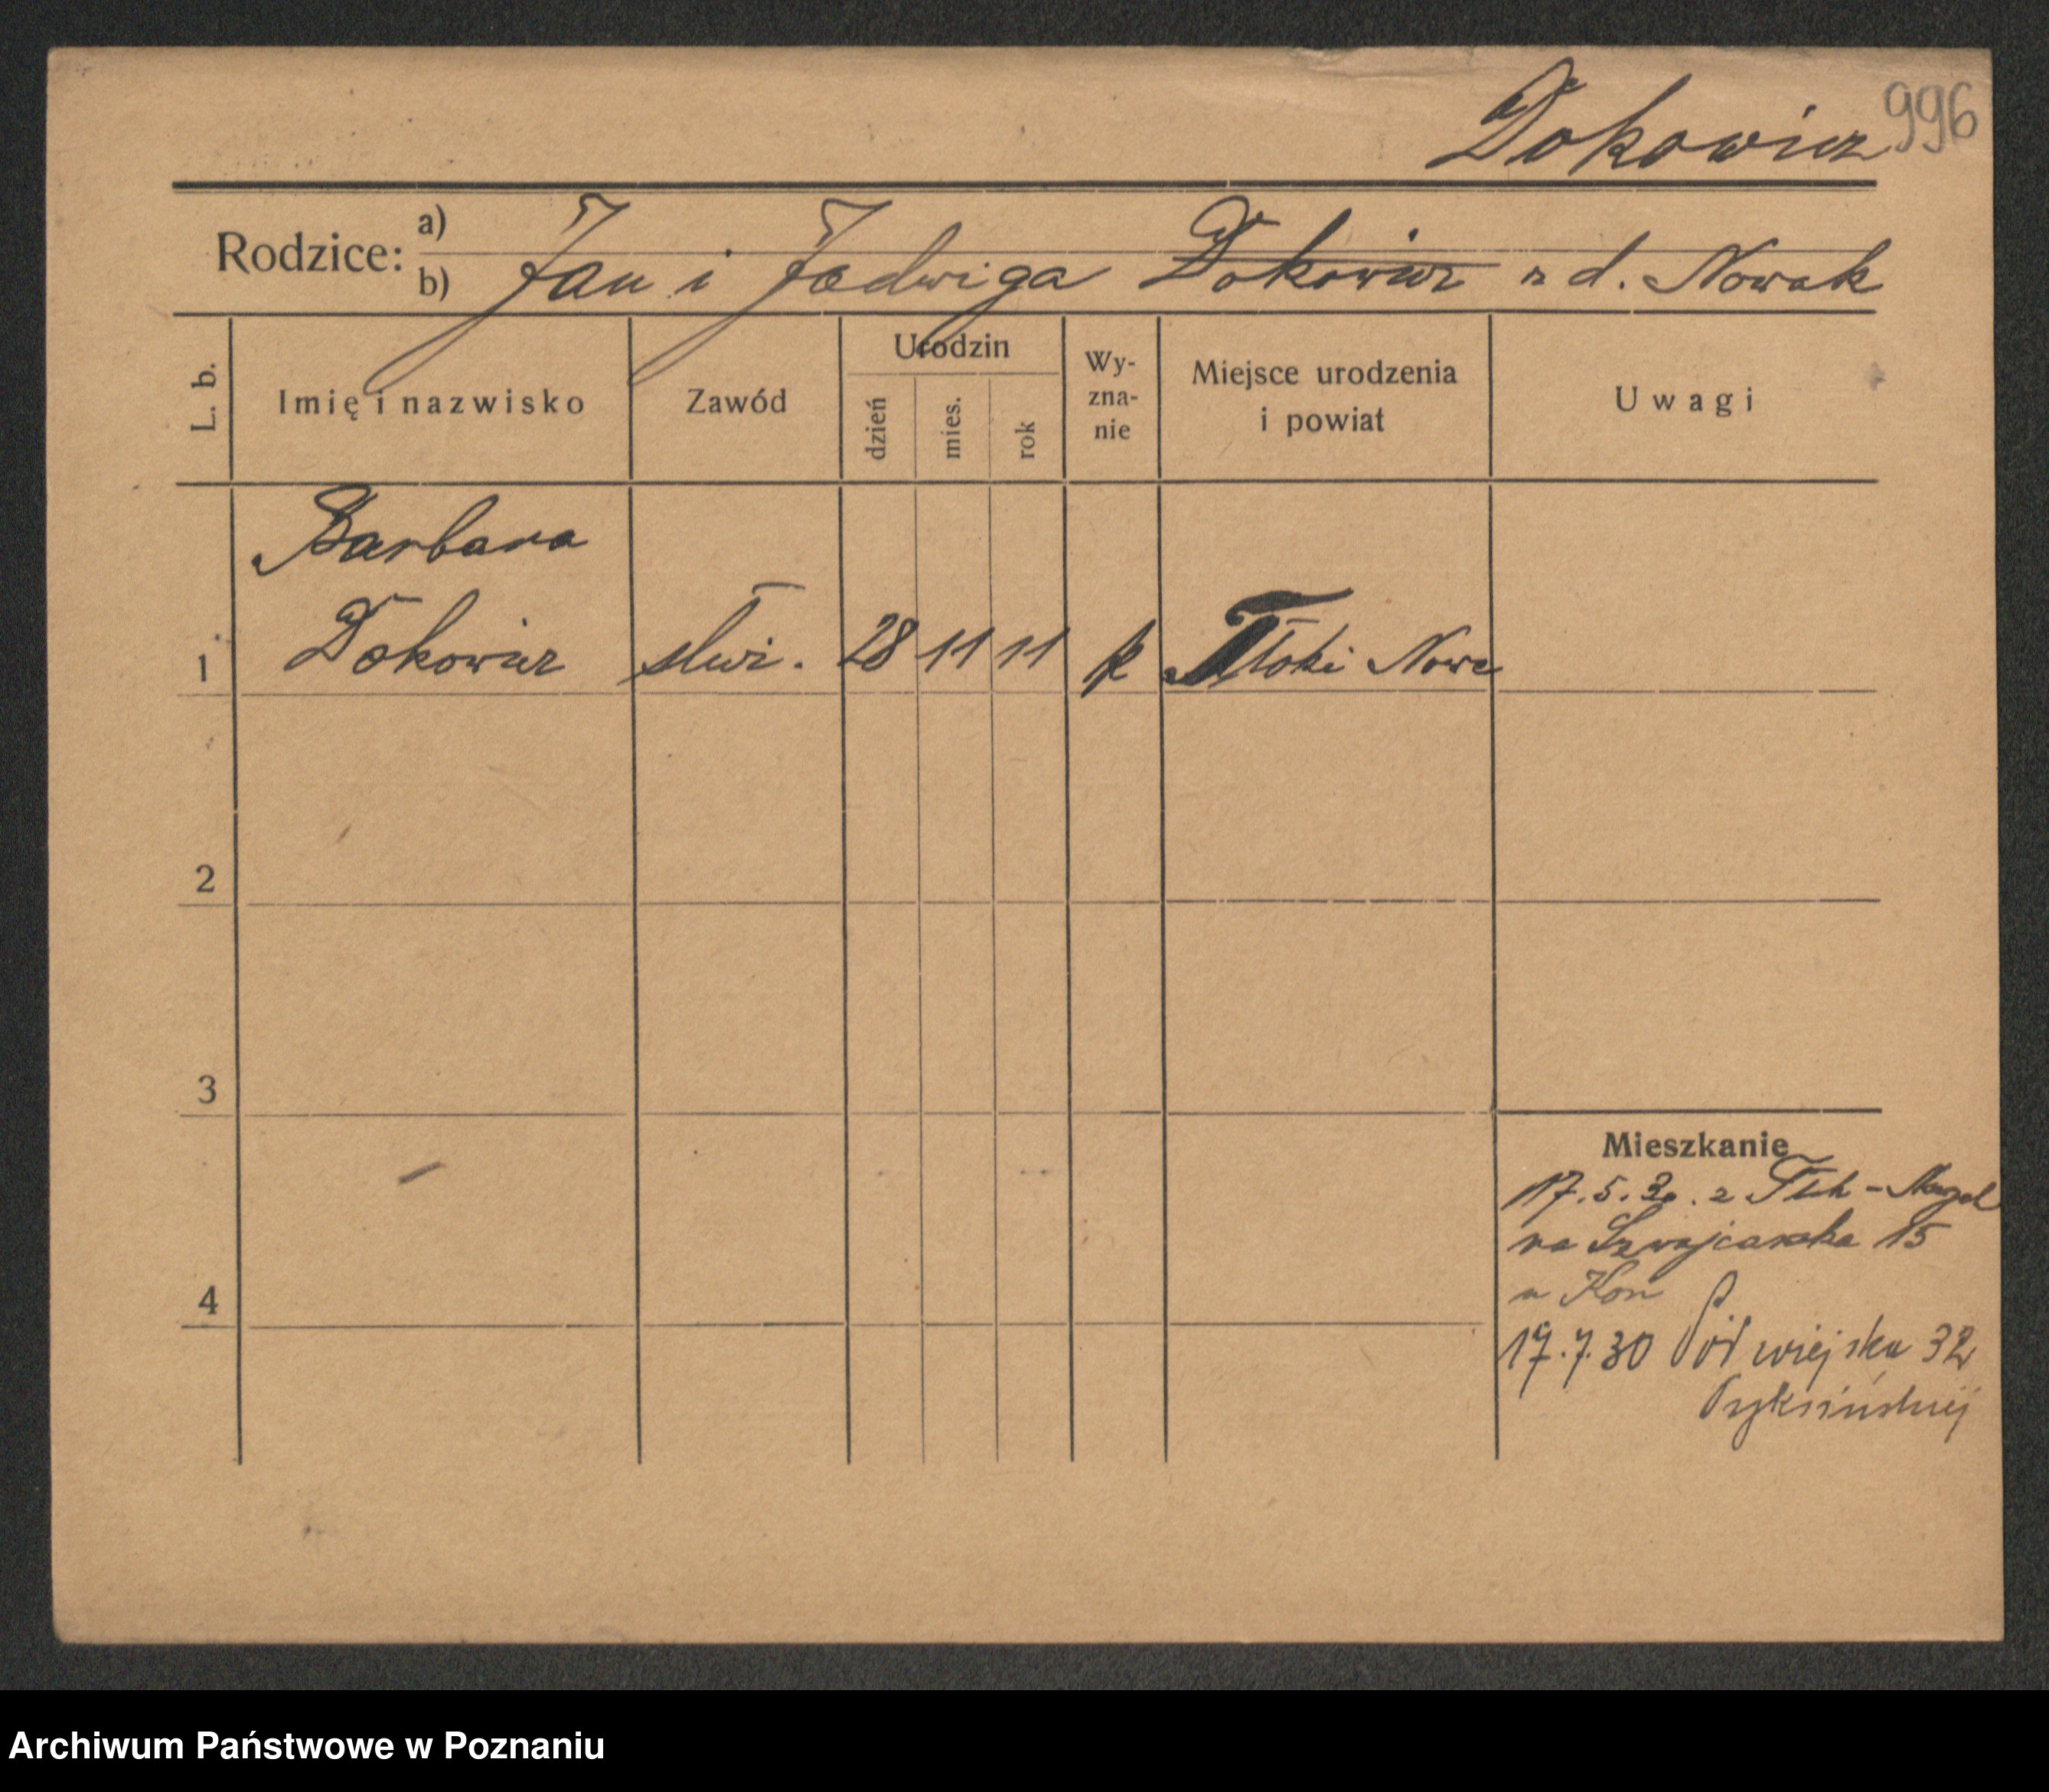 Dokowicz 996
Rodzice: a)
b) Jan i Jadwiga Dokowicz z d. Nowak
L. b.
Imię i nazwisko
Zawód
Urodzin
dzień
mies.
rok
Wy-
zna-
nie
Miejsce urodzenia
i powiat
Uwagi
Barbara
1 Dokowicz służ. 28 11 11 k Tłoki Nowe
2
3
4
Mieszkanie
17.5.30. z
na Szwajcarska 15
u Kon
17.7.30 Półwiejska 32
Archiwum Państwowe w Poznaniu